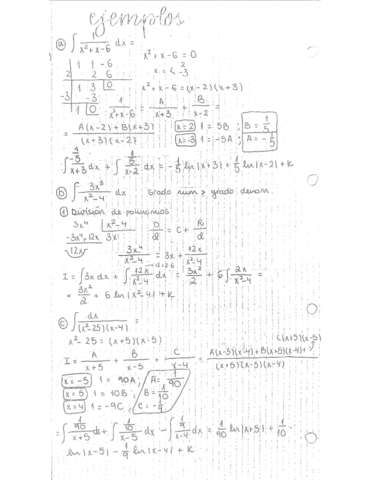 ejemplos
a) ∫ 1/(x²+x-6) dx =
x²+x-6 = 0
x = < 2 -3
1 1 -6
2 2 6
1 3 0
-3 -3
1 0
x²+x-6 = (x-2)(x+3)
1/(x²+x-6) = A/(x+3) + B/(x-2) =
= (A(x-2)+B(x+3))/((x+3)(x-2)) x=2 1=5B ; B=1/5
x=-3 1=-5A ; A=-1/5
∫ (-1/5)/(x+3) dx + ∫ (1/5)/(x-2) dx = -1/5 ln|x+3| + 1/5 ln|x-2| + K
b) ∫ 3x³/(x²-4) dx Grado num > grado denom.
① División de polinomios
3x⁴ |x²-4
-3x⁴+12x 3x
12x
D/d = C + R/d
3x⁴/(x²-4) = 3x + 12x/(x²-4)
I = ∫3x dx + ∫ 12x/(x²-4) dx = 3x²/2 + 6∫ 2x/(x²-4) =
= 3x²/2 + 6 ln|x²-4| + K
c) ∫ dx/((x²-25)(x-4)) =
x²-25 = (x+5)(x-5)
I = A/(x+5) + B/(x-5) + C/(x-4) = (A(x-5)(x-4)+B(x+5)(x-4)+C(x+5)(x-5))/((x+5)(x-5)(x-4))
x=-5 1=90A ; A=1/90
x=5 1=10B ; B=1/10
x=4 1=-9C ; C=-1/9
= ∫ (1/90)/(x+5) dx + ∫ (1/10)/(x-5) dx - ∫ (1/9)/(x-4) dx = 1/90 ln|x+5| + 1/10 ·
ln|x-5| - 1/9 ln|x-4| + K